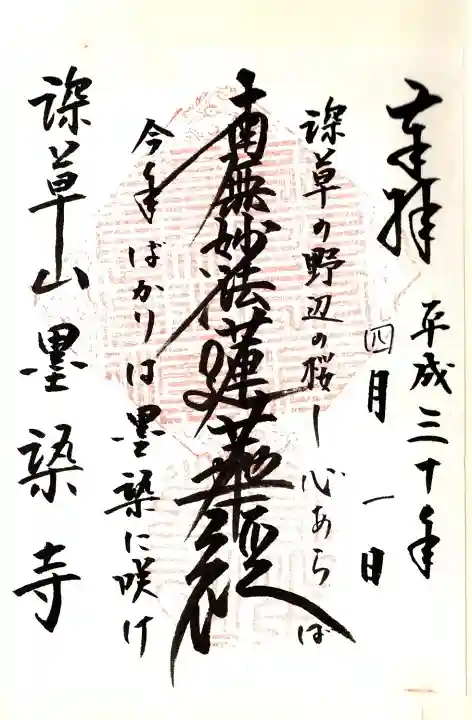 奉拝
平成三十年
四月一日
深草の野辺の桜し心あらば
南無妙法蓮華経
今年ばかりは墨染に咲け
深草山墨染寺